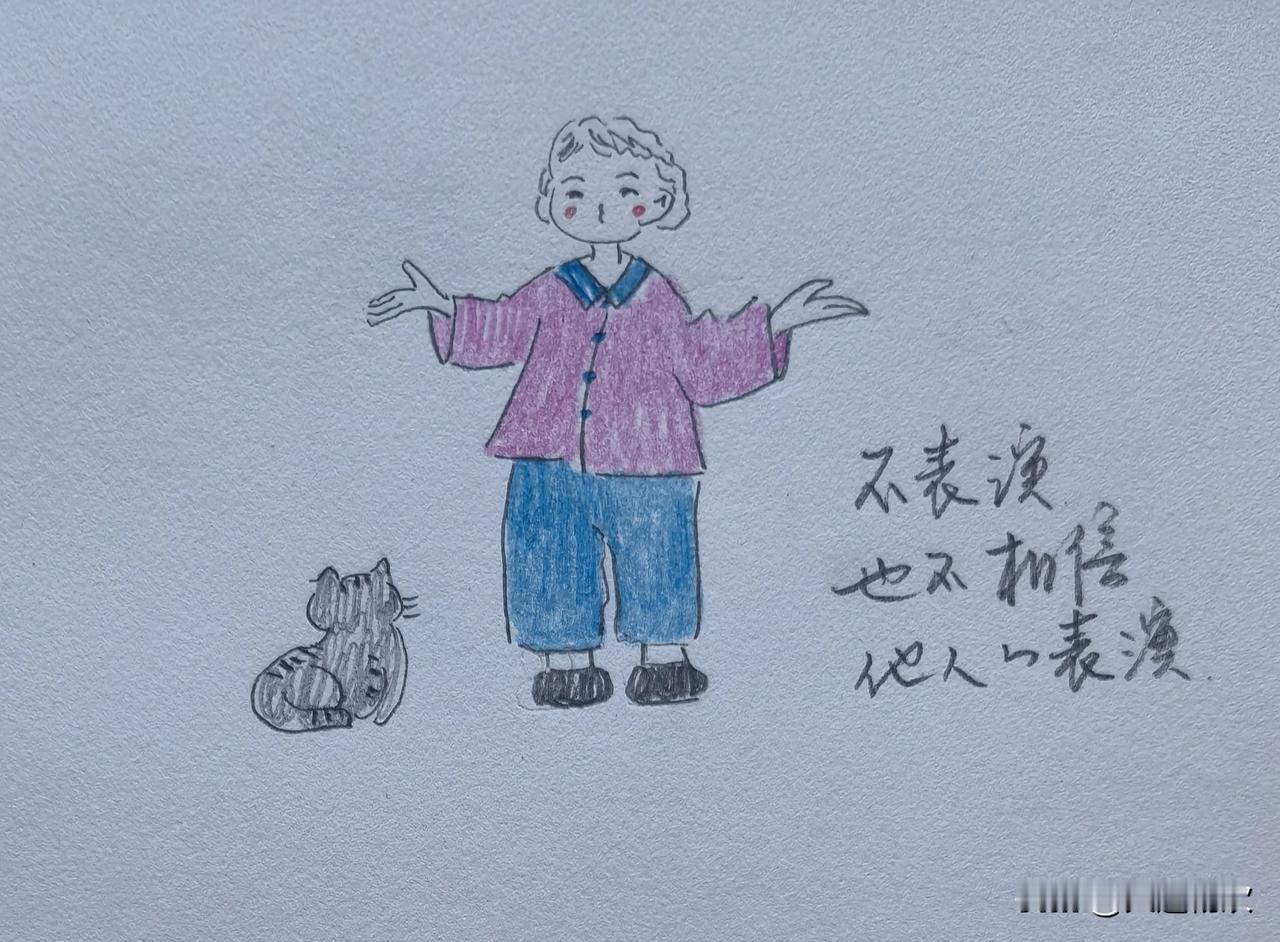 不表演
也不相信
他人的表演.